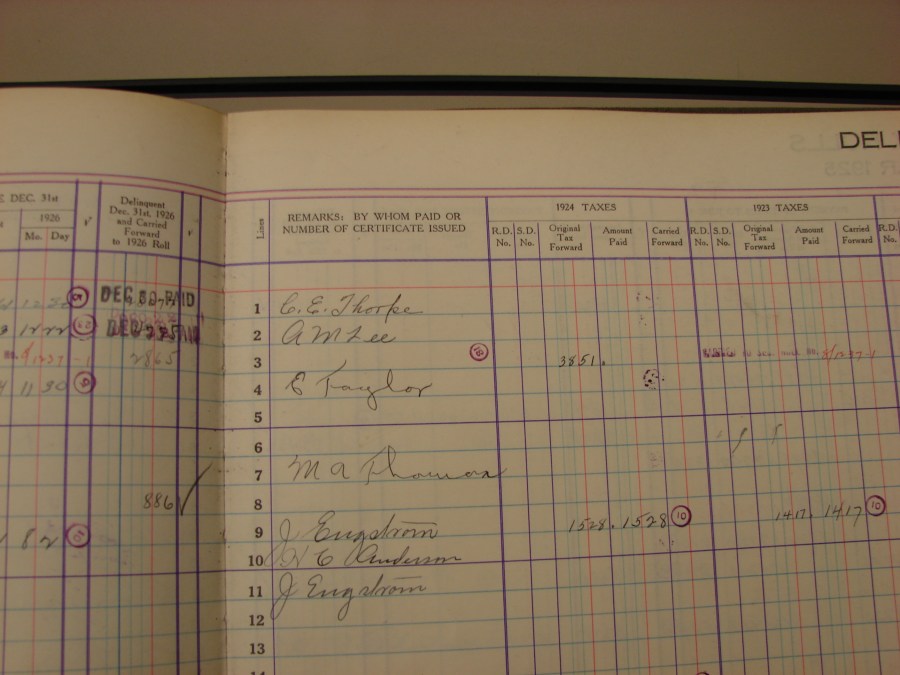 DELI
E DEC. 31st
1926
Mo. Day
√
Delinquent
Dec. 31st, 1926
and Carried
Forward
to 1926 Roll
√
Lines
REMARKS: BY WHOM PAID OR
NUMBER OF CERTIFICATE ISSUED
1924 TAXES
R.D. No.
S.D. No.
Original Tax Forward
Amount Paid
Carried Forward
1923 TAXES
R.D. No.
S.D. No.
Original Tax Forward
Amount Paid
Carried Forward
R.D. No.
DEC PAID
1 C. E. Thorpe
2 A M Lee
2865
3 3851.
11 30
4 E Taylor
5
6
7 M A Thomas
886 √
8
8 2 10
9 J Engström 1528. 1528 10 1417. 1417 10
10 C Anderson
11 J Engström
12
13
14